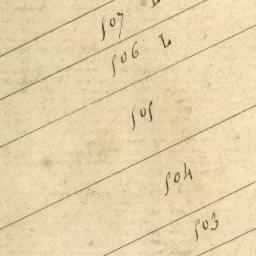 507 L
506 L
505
504
503